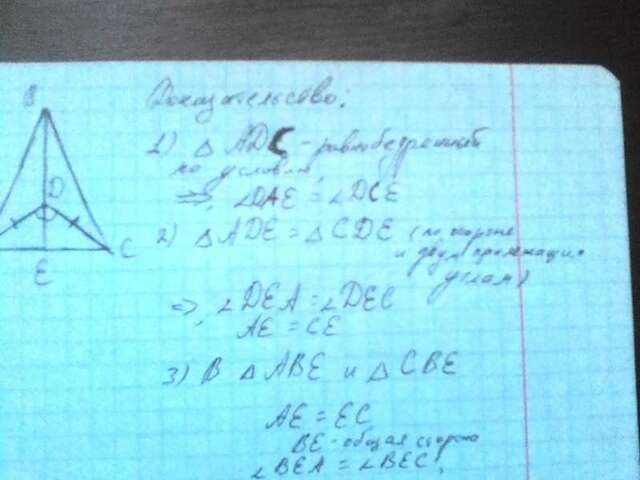 B
D
C
E
Доказательство:
1) △ ADC - равнобедренный
по условию,
⇒, ∠DAE = ∠DCE
2) △ADE = △CDE (по стороне
и двум прилежащим
углам)
⇒, ∠DEA = ∠DEC
AE = CE
3) В △ABE и △CBE
AE = EC
BE - общая сторона
∠BEA = ∠BEC,